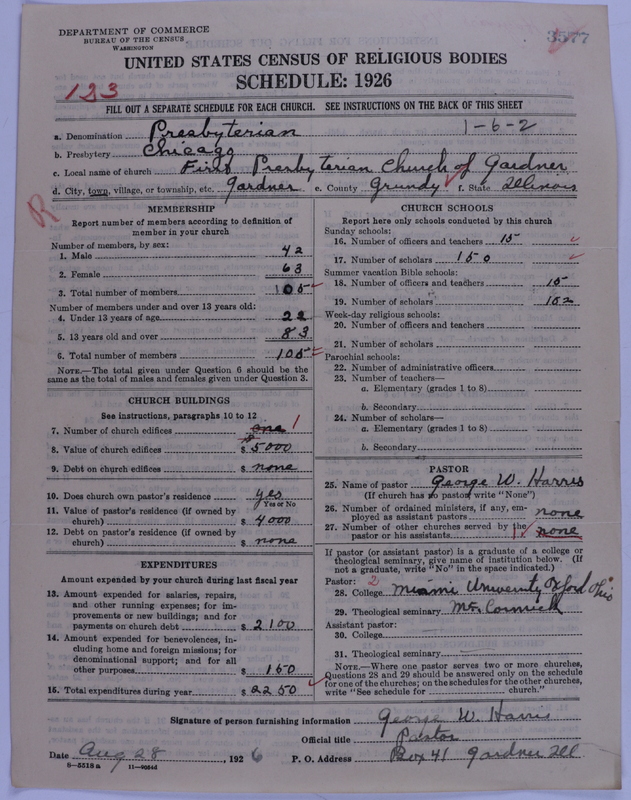 DEPARTMENT OF COMMERCE
BUREAU OF THE CENSUS
WASHINGTON
3577
UNITED STATES CENSUS OF RELIGIOUS BODIES
SCHEDULE: 1926
123
FILL OUT A SEPARATE SCHEDULE FOR EACH CHURCH. SEE INSTRUCTIONS ON THE BACK OF THIS SHEET
a. Denomination Presbyterian 1-6-2
b. Presbytery Chicago
c. Local name of church First Presbyterian Church of Gardner
d. City, town, village, or township, etc. Gardner e. County Grundy f. State Illinois
R
MEMBERSHIP
Report number of members according to definition of
member in your church
Number of members, by sex:
1. Male 42
2. Female 63
3. Total number of members 105
Number of members under and over 13 years old:
4. Under 13 years of age 22
5. 13 years old and over 83
6. Total number of members 105
NOTE.—The total given under Question 6 should be the
same as the total of males and females given under Question 3.
CHURCH BUILDINGS
See instructions, paragraphs 10 to 12
7. Number of church edifices one 1
8. Value of church edifices $ 5000
9. Debt on church edifices $ none
10. Does church own pastor's residence yes
Yes or No
11. Value of pastor's residence (if owned by
church) $ 4000
12. Debt on pastor's residence (if owned by
church) $ none
EXPENDITURES
Amount expended by your church during last fiscal year
13. Amount expended for salaries, repairs,
and other running expenses; for im-
provements or new buildings; and for
payments on church debt $ 2100
14. Amount expended for benevolences, in-
cluding home and foreign missions; for
denominational support; and for all
other purposes $ 150
15. Total expenditures during year $ 2250
CHURCH SCHOOLS
Report here only schools conducted by this church
Sunday schools:
16. Number of officers and teachers 15
17. Number of scholars 150
Summer vacation Bible schools:
18. Number of officers and teachers 15
19. Number of scholars 102
Week-day religious schools:
20. Number of officers and teachers
21. Number of scholars
Parochial schools:
22. Number of administrative officers
23. Number of teachers—
a. Elementary (grades 1 to 8)
b. Secondary
24. Number of scholars—
a. Elementary (grades 1 to 8)
b. Secondary
PASTOR
25. Name of pastor George W. Harris
(If church has no pastor, write "None")
26. Number of ordained ministers, if any, em-
ployed as assistant pastors none
27. Number of other churches served by the
pastor or his assistants 1 none
If pastor (or assistant pastor) is a graduate of a college or
theological seminary, give name of institution below. (If
not a graduate, write "No" in the space indicated.)
Pastor: 2
28. College Miami University Oxford Ohio
29. Theological seminary McCormick
Assistant pastor:
30. College
31. Theological seminary
NOTE.—Where one pastor serves two or more churches,
Questions 28 and 29 should be answered only on the schedule
for one of the churches; on the schedules for the other churches,
write "See schedule for church."
Signature of person furnishing information George W. Harris
Official title Pastor
Date Aug 28, 1926 P. O. Address Box 41 Gardner Ill
8-5518a 11-9084d